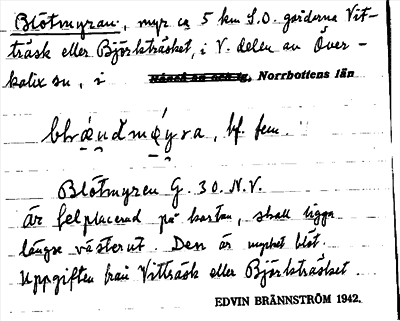 Blötmyran, myr ca 5 km S.O. gårderna Vit-
träsk eller Björkträsket, i V. delen av Över-
kalix sn, i Norrbottens län
bf. fem.
Blötmyren G. 30. N.V.
Är felplacerad på kartan, skall ligga
längre västerut. Den är mycket blöt.
Uppgiften från Vitträsk eller Björkträsket.
EDVIN BRÄNNSTRÖM 1942.